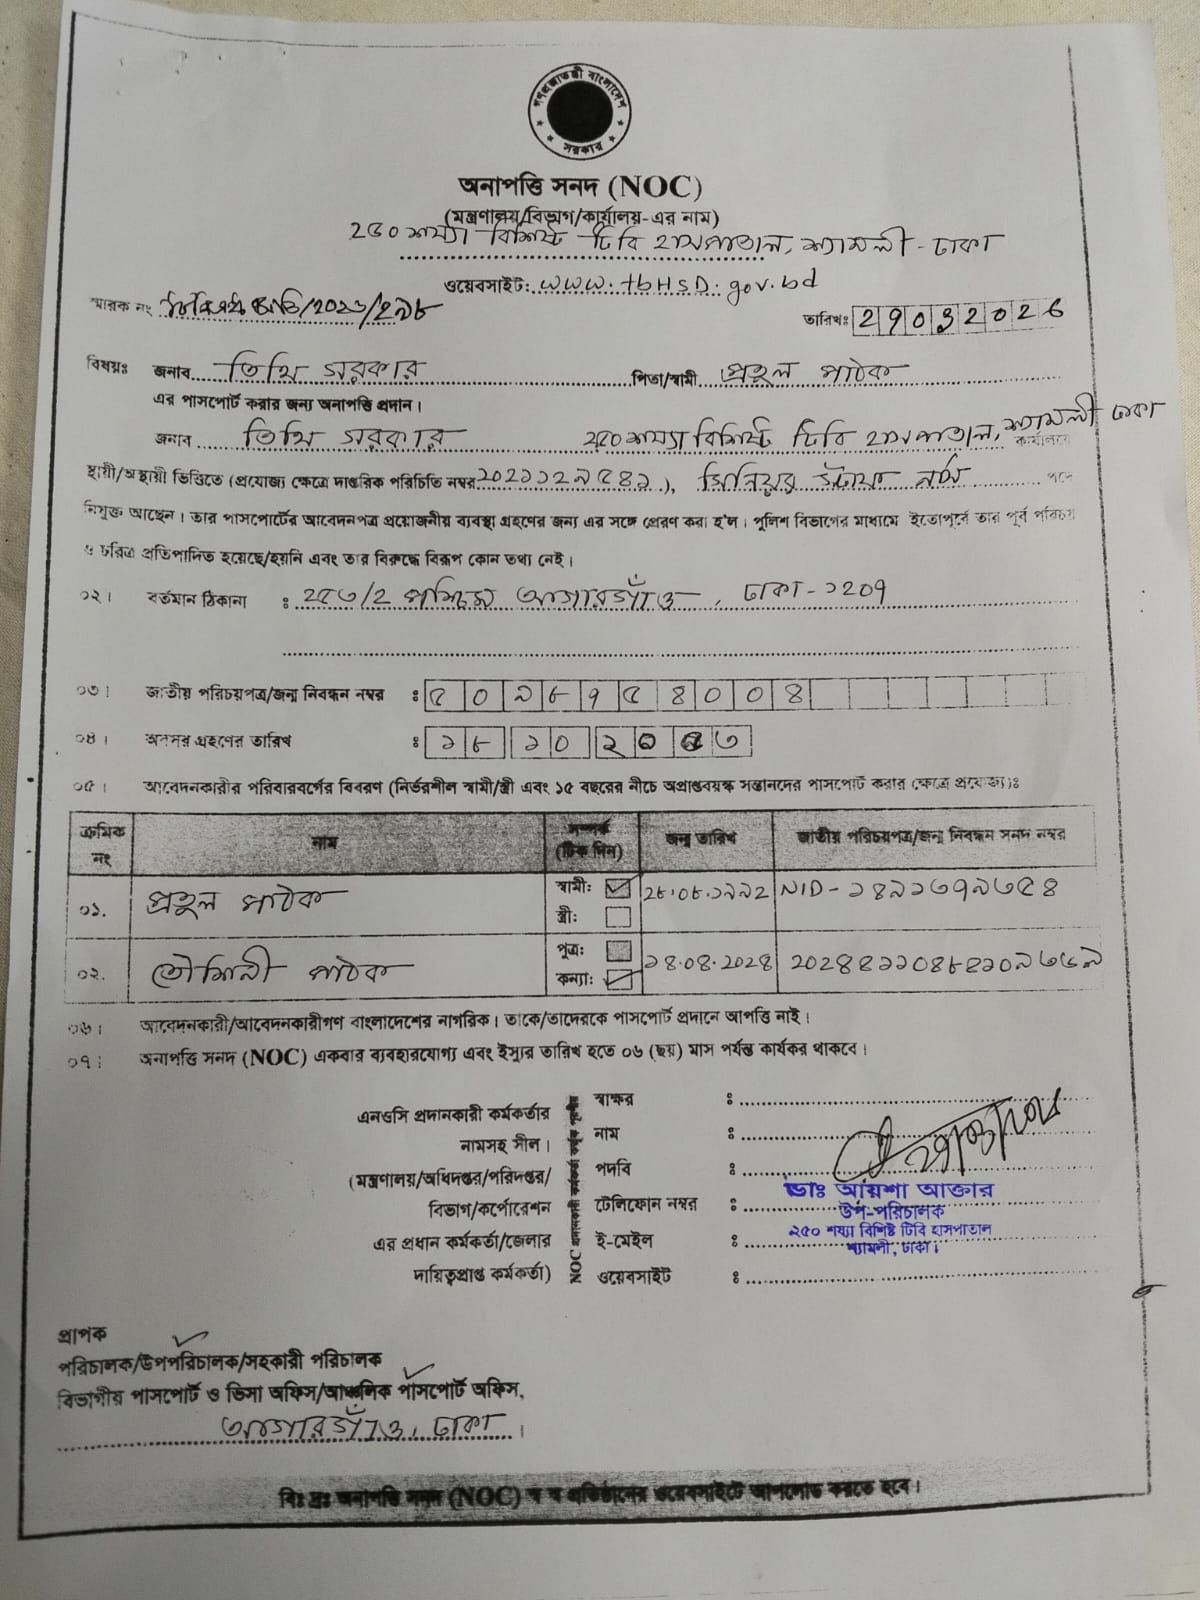 গণপ্রজাতন্ত্রী বাংলাদেশ
সরকার
অনাপত্তি সনদ (NOC)
(মন্ত্রণালয়/বিভাগ/কার্যালয়-এর নাম)
২৫০ শয্যা বিশিষ্ট টিবি হাসপাতাল, শ্যামলী - ঢাকা
ওয়েবসাইট: www.tbHSD.gov.bd
স্মারক নং
তারিখঃ
বিষয়ঃ জনাব তিথি সরকার পিতা/স্বামী প্রতুল পাঠক
এর পাসপোর্ট করার জন্য অনাপত্তি প্রদান।
জনাব তিথি সরকার ২৫০ শয্যা বিশিষ্ট টিবি হাসপাতাল, শ্যামলী ঢাকা কার্যালয়ে
স্থায়ী/অস্থায়ী ভিত্তিতে (প্রযোজ্য ক্ষেত্রে দাপ্তরিক পরিচিতি নম্বর ২০২১১২৯৫৪১), সিনিয়র স্টাফ নার্স পদে
নিযুক্ত আছেন। তার পাসপোর্টের আবেদনপত্র প্রয়োজনীয় ব্যবস্থা গ্রহণের জন্য এর সঙ্গে প্রেরণ করা হ'ল। পুলিশ বিভাগের মাধ্যমে ইতোপূর্বে তার পূর্ব পরিচয়
ও চরিত্র প্রতিপাদিত হয়েছে/হয়নি এবং তার বিরুদ্ধে বিরূপ কোন তথ্য নেই।
০২। বর্তমান ঠিকানা : ২৫৩/২ পশ্চিম আগারগাঁও, ঢাকা-১২০৭
০৩। জাতীয় পরিচয়পত্র/জন্ম নিবন্ধন নম্বর : ৫০৯৮৭৫৪০০৪
০৪। অবসর গ্রহণের তারিখ :
০৫। আবেদনকারীর পরিবারবর্গের বিবরণ (নির্ভরশীল স্বামী/স্ত্রী এবং ১৫ বছরের নীচে অপ্রাপ্তবয়স্ক সন্তানদের পাসপোর্ট করার ক্ষেত্রে প্রযোজ্য)ঃ
ক্রমিক নং নাম সম্পর্ক (টিক দিন) জন্ম তারিখ জাতীয় পরিচয়পত্র/জন্ম নিবন্ধন সনদ নম্বর
০১. প্রতুল পাঠক স্বামী: ২৮.০৮.১৯৯২ NID - ১৪৯১৩৭৯৩৫৪
স্ত্রী:
০২. পাঠক পুত্র:
কন্যা:
০৬। আবেদনকারী/আবেদনকারীগণ বাংলাদেশের নাগরিক। তাকে/তাদেরকে পাসপোর্ট প্রদানে আপত্তি নাই।
০৭। অনাপত্তি সনদ (NOC) একবার ব্যবহারযোগ্য এবং ইস্যুর তারিখ হতে ০৬ (ছয়) মাস পর্যন্ত কার্যকর থাকবে।
এনওসি প্রদানকারী কর্মকর্তার
নামসহ সীল।
(মন্ত্রণালয়/অধিদপ্তর/পরিদপ্তর/
বিভাগ/কর্পোরেশন
এর প্রধান কর্মকর্তা/জেলার
দায়িত্বপ্রাপ্ত কর্মকর্তা)
NOC প্রদানকারী কর্মকর্তা কর্তৃক
স্বাক্ষর :
নাম :
পদবি :
টেলিফোন নম্বর :
ই-মেইল :
ওয়েবসাইট :
ডাঃ আয়শা আক্তার
উপ-পরিচালক
২৫০ শয্যা বিশিষ্ট টিবি হাসপাতাল
শ্যামলী, ঢাকা।
প্রাপক
পরিচালক/উপপরিচালক/সহকারী পরিচালক
বিভাগীয় পাসপোর্ট ও ভিসা অফিস/আঞ্চলিক পাসপোর্ট অফিস,
আগারগাঁও, ঢাকা।
বিঃ দ্রঃ অনাপত্তি সনদ (NOC) স্ব স্ব প্রতিষ্ঠানের ওয়েবসাইটে আপলোড করতে হবে।